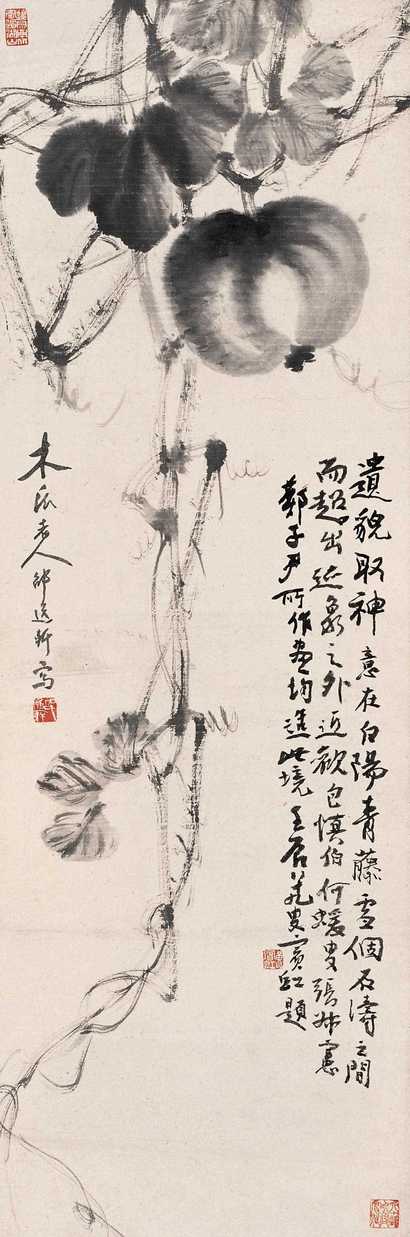 遺貌取神意在白陽青藤雪個石濤之間
而超出迹象之外近歡包慎伯何蝯叟張叔憲
鄭子尹所作畫均造此境壬辰八十九叟賓虹題
木瓜老人邵逸軒寫